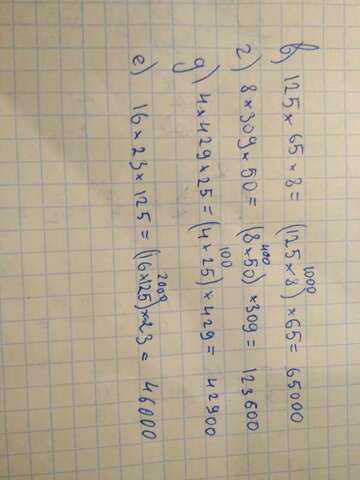 в) 125 × 65 × 8 = (125 × 8) × 65 = 65000
1000
г) 8 × 309 × 50 = (8 × 50) × 309 = 123600
400
д) 4 × 429 × 25 = (4 × 25) × 429 = 42900
100
е) 16 × 23 × 125 = (16 × 125) × 23 = 46000
2000